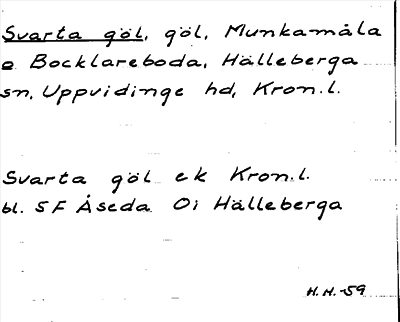 Svarta göl, göl, Munkamåla
o Bocklareboda, Hälleberga
sn, Uppvidinge hd, Kron.l.
Svarta göl ek Kron.l.
bl. 5F Åseda 0i Hälleberga
H.H.-59